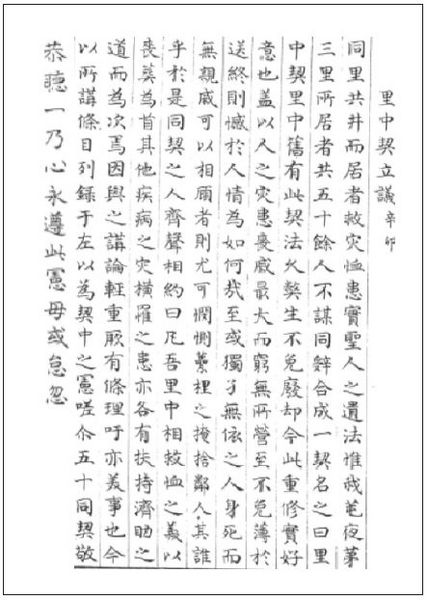 里中契立議 辛卯
同里共井而居者救灾恤患實聖人之遺法惟我芼夜茅
三里所居者共五十餘人不謀同辭合成一契名之曰里
中契里中舊有此契法久弊生不免廢却今此重修實好
意也盖以人之灾患喪威最大而窮無所營至不免薄於
送終則憾於人情為如何哉至或獨孑無依之人身死而
無親戚可以相顧者則尤可憫惻虆梩之掩捨鄰人其誰
乎於是同契之人齊聲相約曰凡吾里中相救恤之義以
喪葬為首其他疾病之灾橫罹之患亦各有扶持濟助之
道而為次焉因與之講論輕重厥有條理吁亦美事也今
以所講條目列録于左以為契中之憲嗟尒五十同契敬
恭聽一乃心永遵此憲毋或怠忽